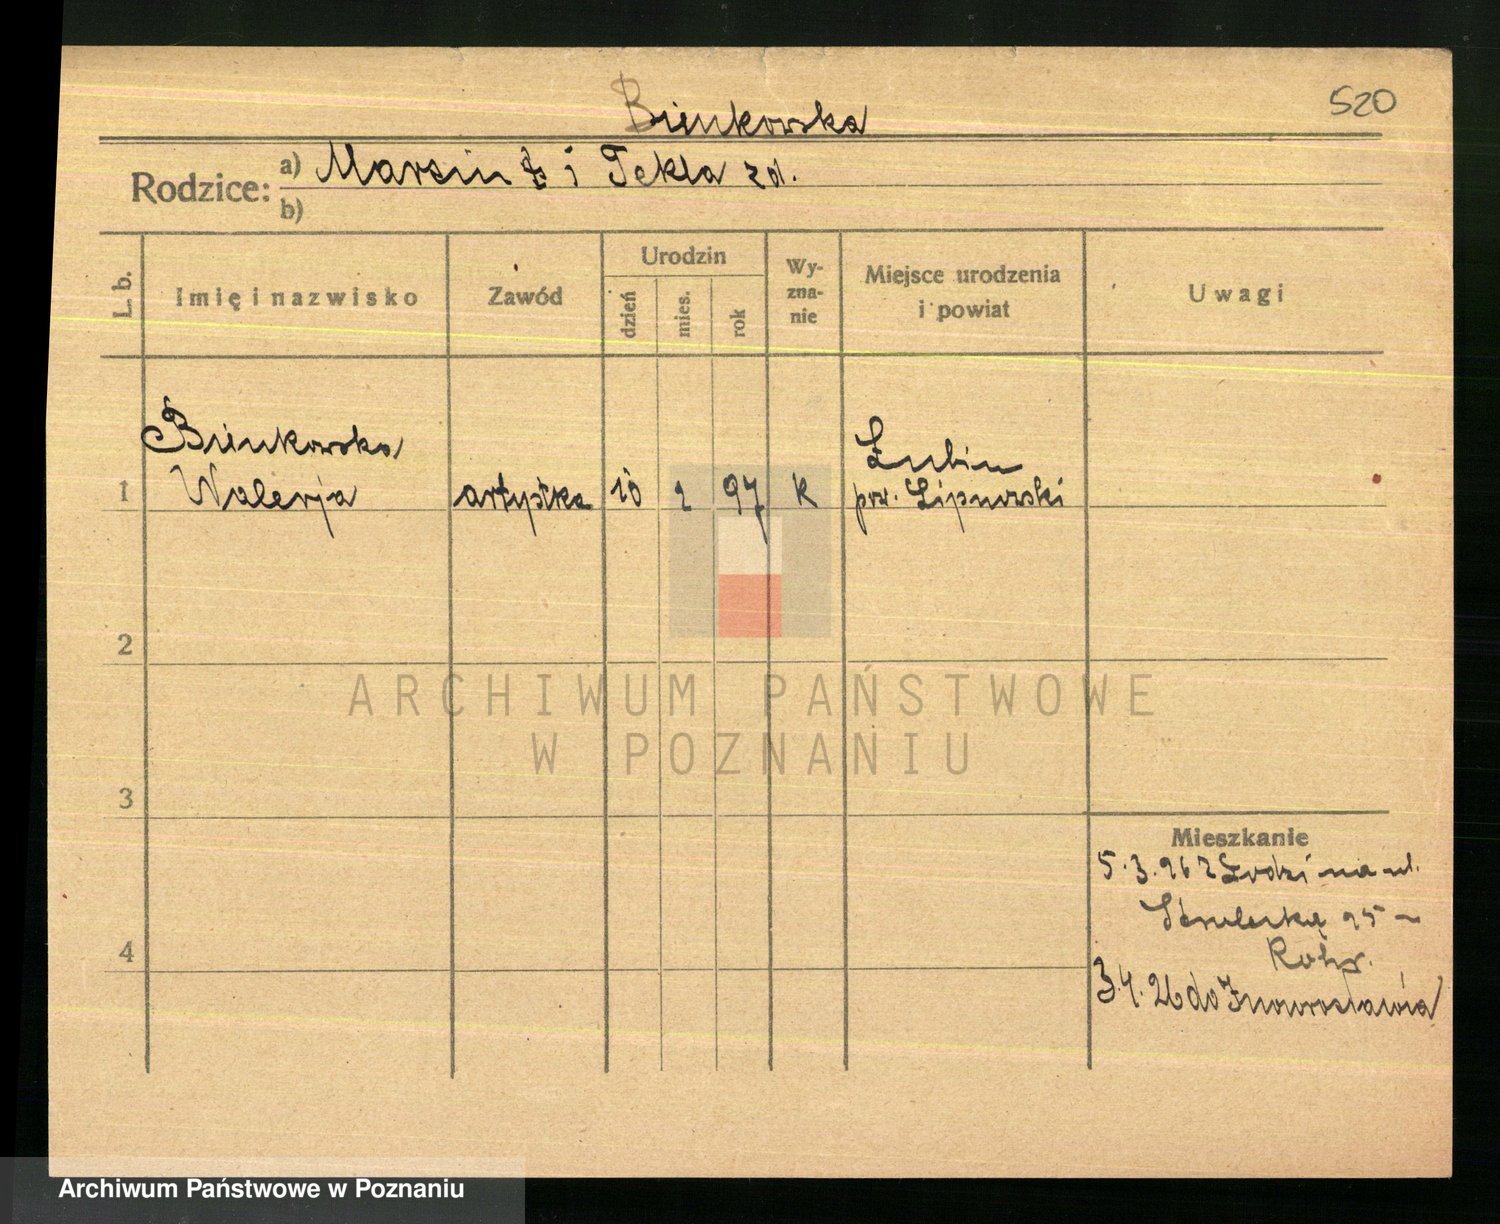 520
Bienkowska
Rodzice: a) Marcin i Tekla zd.
b)
L. b. Imię i nazwisko Zawód Urodzin dzień mies. rok Wyznanie Miejsce urodzenia i powiat Uwagi
Bienkowska
Łubin
1 Walerja artystka 10 2 97 K pow. Lipnowski
2
ARCHIWUM PAŃSTWOWE
W POZNANIU
3
Mieszkanie
5.3.26 z Łodzi na ul.
4
3.4.26 do Inowrocławia
Archiwum Państwowe w Poznaniu